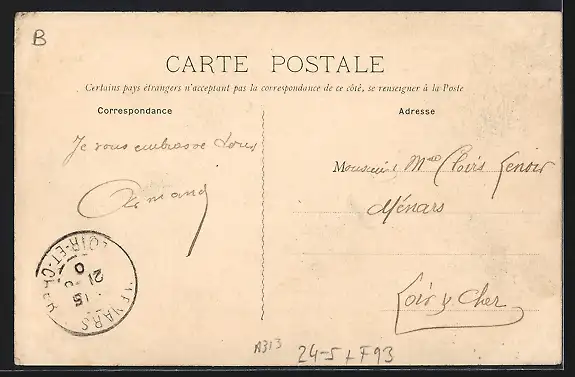 B
CARTE POSTALE
Certains pays étrangers n'acceptant pas la correspondance de ce côté, se renseigner à la Poste
Correspondance
Adresse
Je vous embrasse tous
Armand
Monsieur Mme Clovis Lenoir
Ménars
Loir & Cher
MENARS
LOIR-ET-CHER
21
15
A313
24-5 + F93